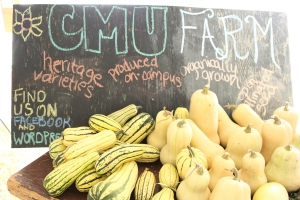 CMU FARM
heritage varieties
produced on campus
organically grown
FIND
US ON
FACEBOOK
AND
WORDPRESS